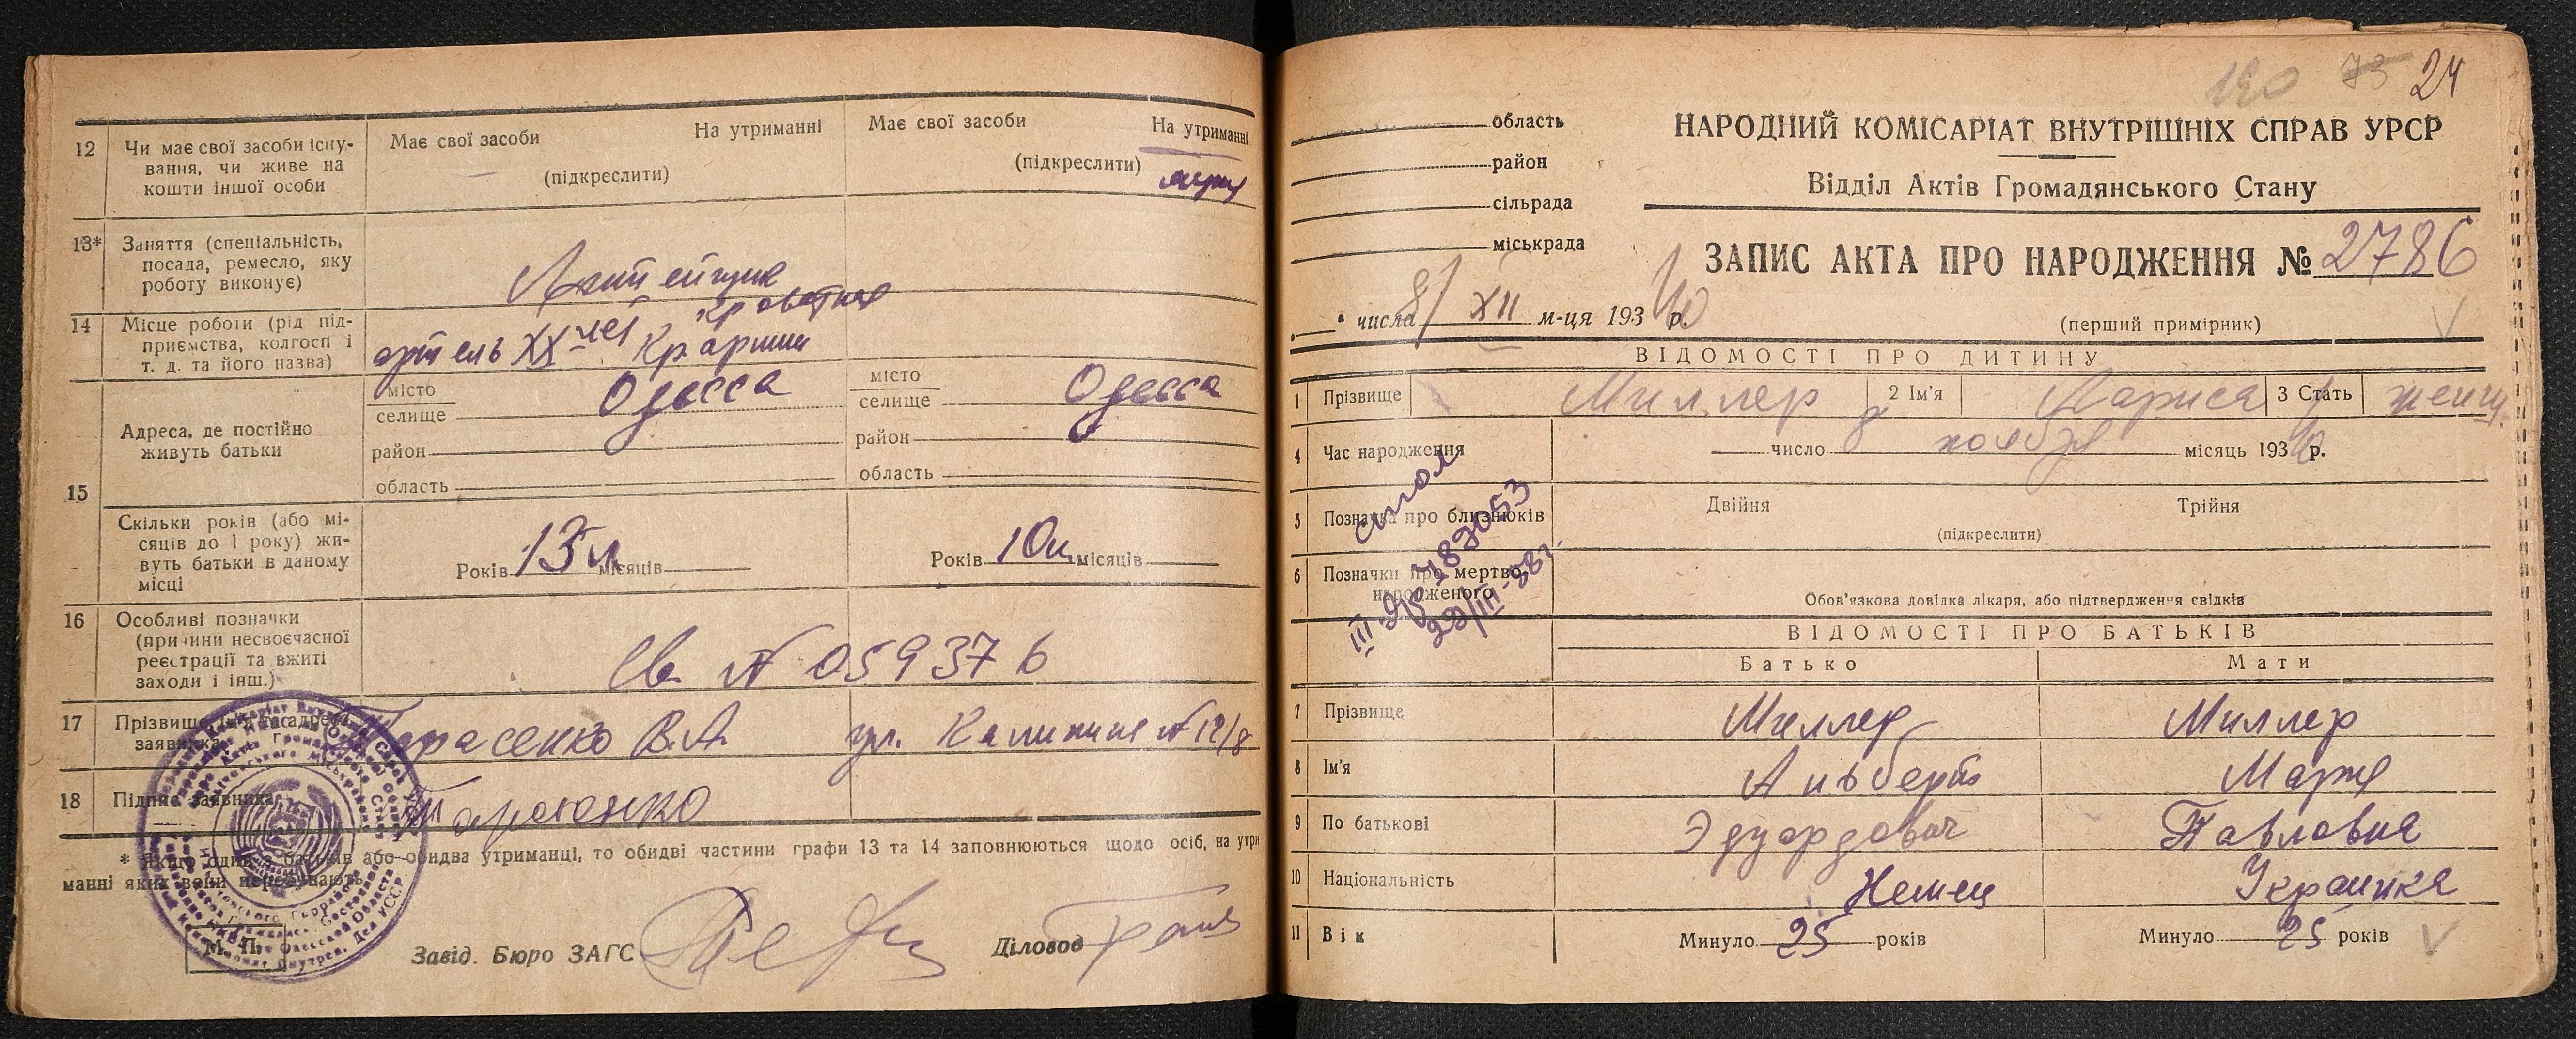 12
Чи має свої засоби існу-
вання, чи живе на
кошти іншої особи
Має свої засоби
На утриманні
(підкреслити)
Має свої засоби
На утриманні
(підкреслити)
13*
Заняття (спеціальність,
посада, ремесло, яку
роботу виконує)
14
Місце роботи (рід під-
приємства, колгосп і
т. д. та його назва)
артель ХХ лет Кр. армии
15
Адреса, де постійно
живуть батьки
місто
селище
Одесса
район
область
місто
селище
Одесса
район
область
Скільки років (або мі-
сяців до 1 року) жи-
вуть батьки в даному
місці
Років 13 л місяців
Років 10 місяців
16
Особливі позначки
(причини несвоєчасної
реєстрації та вжиті
заходи і інш.)
Св. № 059376
17
Прізвище, ім'я та адреса
заявника
Тарасенко В.А. ул. Калинина № 12/8
18
Підпис заявника
Тарасенко
* Якщо один з батьків або обидва утриманці, то обидві частини графи 13 та 14 заповнюються щодо осіб, на утри
манні яких вони перебувають
М. П.
Завід. Бюро ЗАГС
Діловод
190 73 24
область
район
сільрада
міськрада
НАРОДНИЙ КОМІСАРІАТ ВНУТРІШНІХ СПРАВ УРСР
Відділ Актів Громадянського Стану
ЗАПИС АКТА ПРО НАРОДЖЕННЯ № 2786
(перший примірник)
" числа 8/ XII м-ця 193 40 р.
ВІДОМОСТІ ПРО ДИТИНУ
1 Прізвище Миллер 2 Ім'я Лариса 3 Стать женщ.
4 Час народження число 8 ноября місяць 193 40 р.
5 Позначка про близнюків
Двійня
Трійня
(підкреслити)
6 Позначки про мертво-
народженого
Обов'язкова довідка лікаря, або підтвердження свідків
29/III-88г.
ВІДОМОСТІ ПРО БАТЬКІВ
Батько
Мати
7 Прізвище Миллер Миллер
8 Ім'я Альберт Мария
9 По батькові Эдуардович Павловна
10 Національність Немец Украинка
11 Вік Минуло 25 років Минуло 25 років